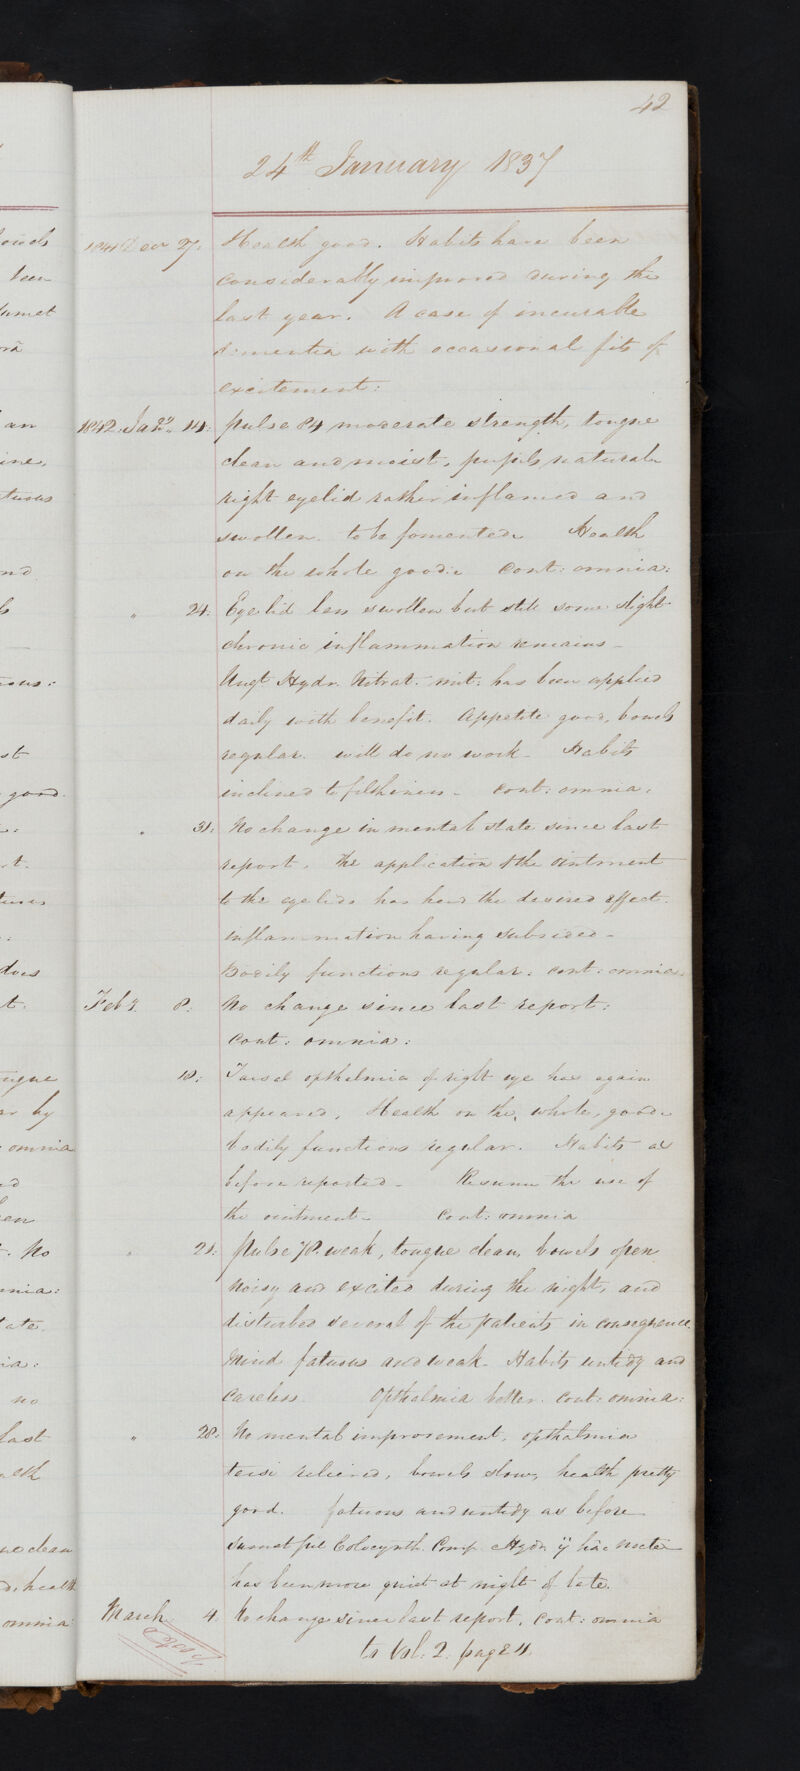 42
24th January 1837
1841 Decr 27. Health good. Habits have been
considerably improved during the
last year. A case of incurable
dimentia with occasional fits of
excitement:
1842. Jany. 14: pulse 84 moderate strength, tongue
clean and moist, pupils natural.
right eyelid rather inflamed and
swollen. to be fomented. Health
on the whole good. Cont: omnia:
" 24: Eyelid less swollen but still some slight
chronic inflammation remains -
Ungt Hydr. Nitrat. mit: has been applied
daily with benefit. Appetite good, bowels
regular. will do no work - Habits
inclined to filthiness - Cont: omnia.
" 31: No change in mental state since last
report. The application of the ointment
to the eyelids has had the desired effect.
inflammation having subsided -
Bodily functions regular: cont: omnia:
Feby. 8: No change since last report:
Cont: omnia:
18: Tarsal opthalmia of right eye has again
appeared. Health on the whole, good.
bodily functions regular. Habits as
before reported - Resume the use of
the ointment - Cont: omnia
" 21: pulse 78. weak, tongue clean, bowels open
Noisy and excited during the night, and
disturbed several of the patients in consequence.
Mind fatuous and weak. Habits untidy and
careless. Opthalmia better. Cont: omnia:
" 28: No mental improvement, opthalmia
tarsi relieved, bowels slow, health pretty
good. fatuous and untidy as before
Sumat pil Colocynth. Comp. c Hydr. ij hac nocte
has been more quiet at night of late.
March 4. No change since last report. Cont: omnia
to Vol: 2. page 4
Posted
owels
been
sumat
an
ine,
tuous
nd
ous:
st
good.
t.
does
t.
ngue
by
omnia
No
nia:
ate.
ia:
no
last
alth
health
omnia